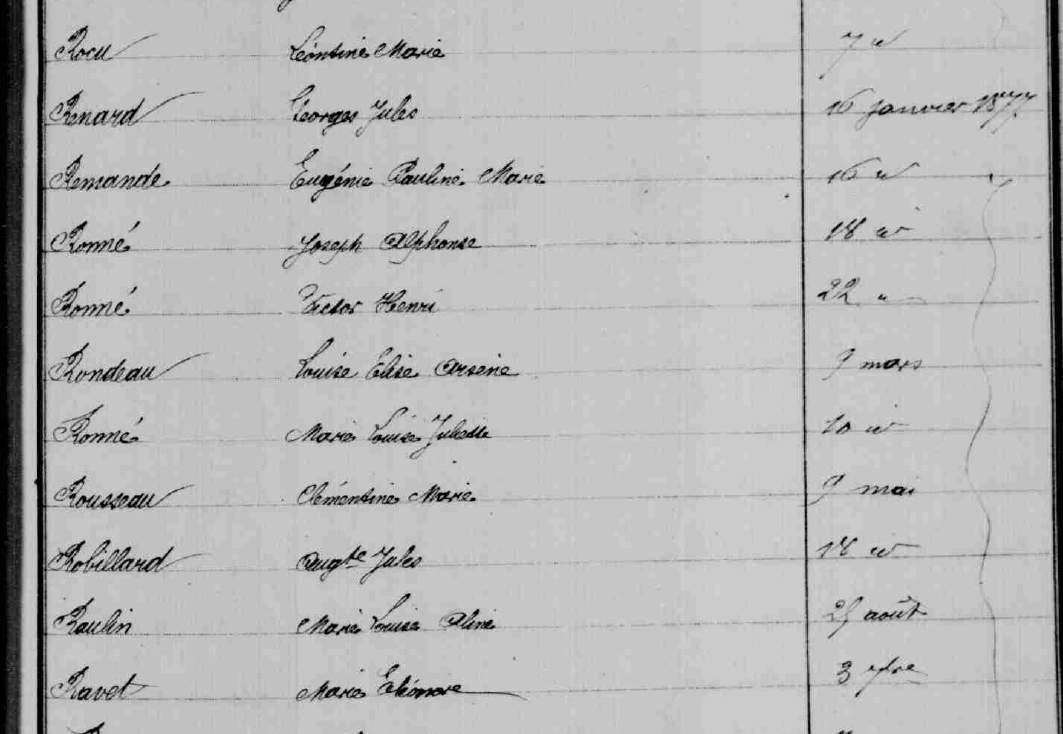 Rocu Léontine Marie 7 id
Renard Georges Jules 16 janvier 1877
Remande Eugénie Pauline Marie 16 id
Ronné Joseph Alphonse 18 id
Ronné Victor Henri 22 "
Rondeau Louise Elise Arsène 9 mars
Ronné Marie Louise Juliette 10 id
Rousseau Clémentine Marie 9 mai
Robillard Augte Jules 18 id
Raulin Marie Louise Aline 25 août
Ravet Marie Eléonore 3